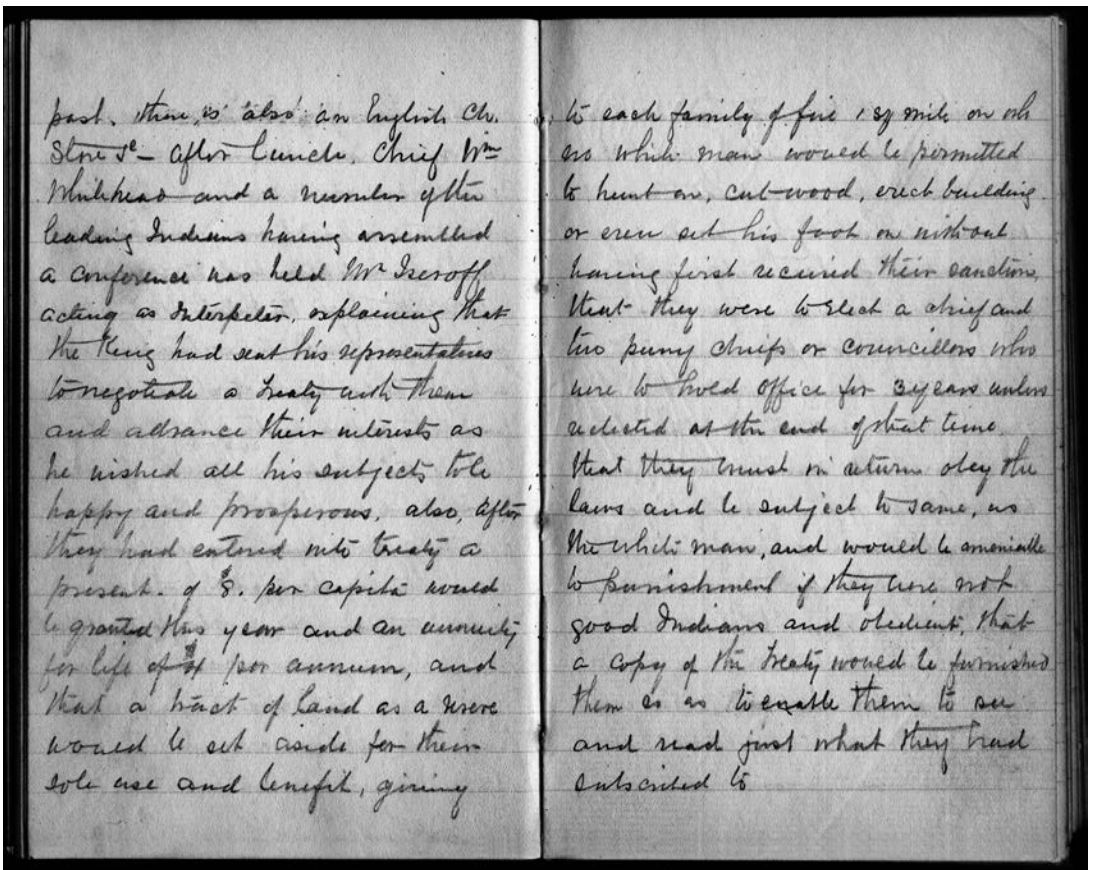 past. there is also an English Ch.
Store &c – After lunch, Chief Wm
Whitehead and a number of the
leading Indians having assembled
a conference was held Mr Iseroff
acting as Interpeter, explaining that
the King had sent his representatives
to negotiate a Treaty with them
and advance their interests as
he wished all his subjects to be
happy and prosperous, also, after
they had entered into treaty a
present. of $8. per capita would
be granted this year and an annuity
for life of $4 per annum, and
that a tract of land as a reserve
would be set aside for their
sole use and benefit, giving
to each family of five 1 sq mile on wh
no white man would be permitted
to hunt on, cut wood, erect building
or even set his foot on without
having first received their sanction,
that they were to elect a chief and
two puny chiefs or councillors who
were to hold office for 3 years unless
reelected at the end of that time.
that they must in return obey the
laws and be subject to same, as
the white man, and would be ameniable
to punishment if they were not
good Indians and obedient, that
a copy of the Treaty would be furnished
them so as to enable them to see
and read just what they had
subscribed to